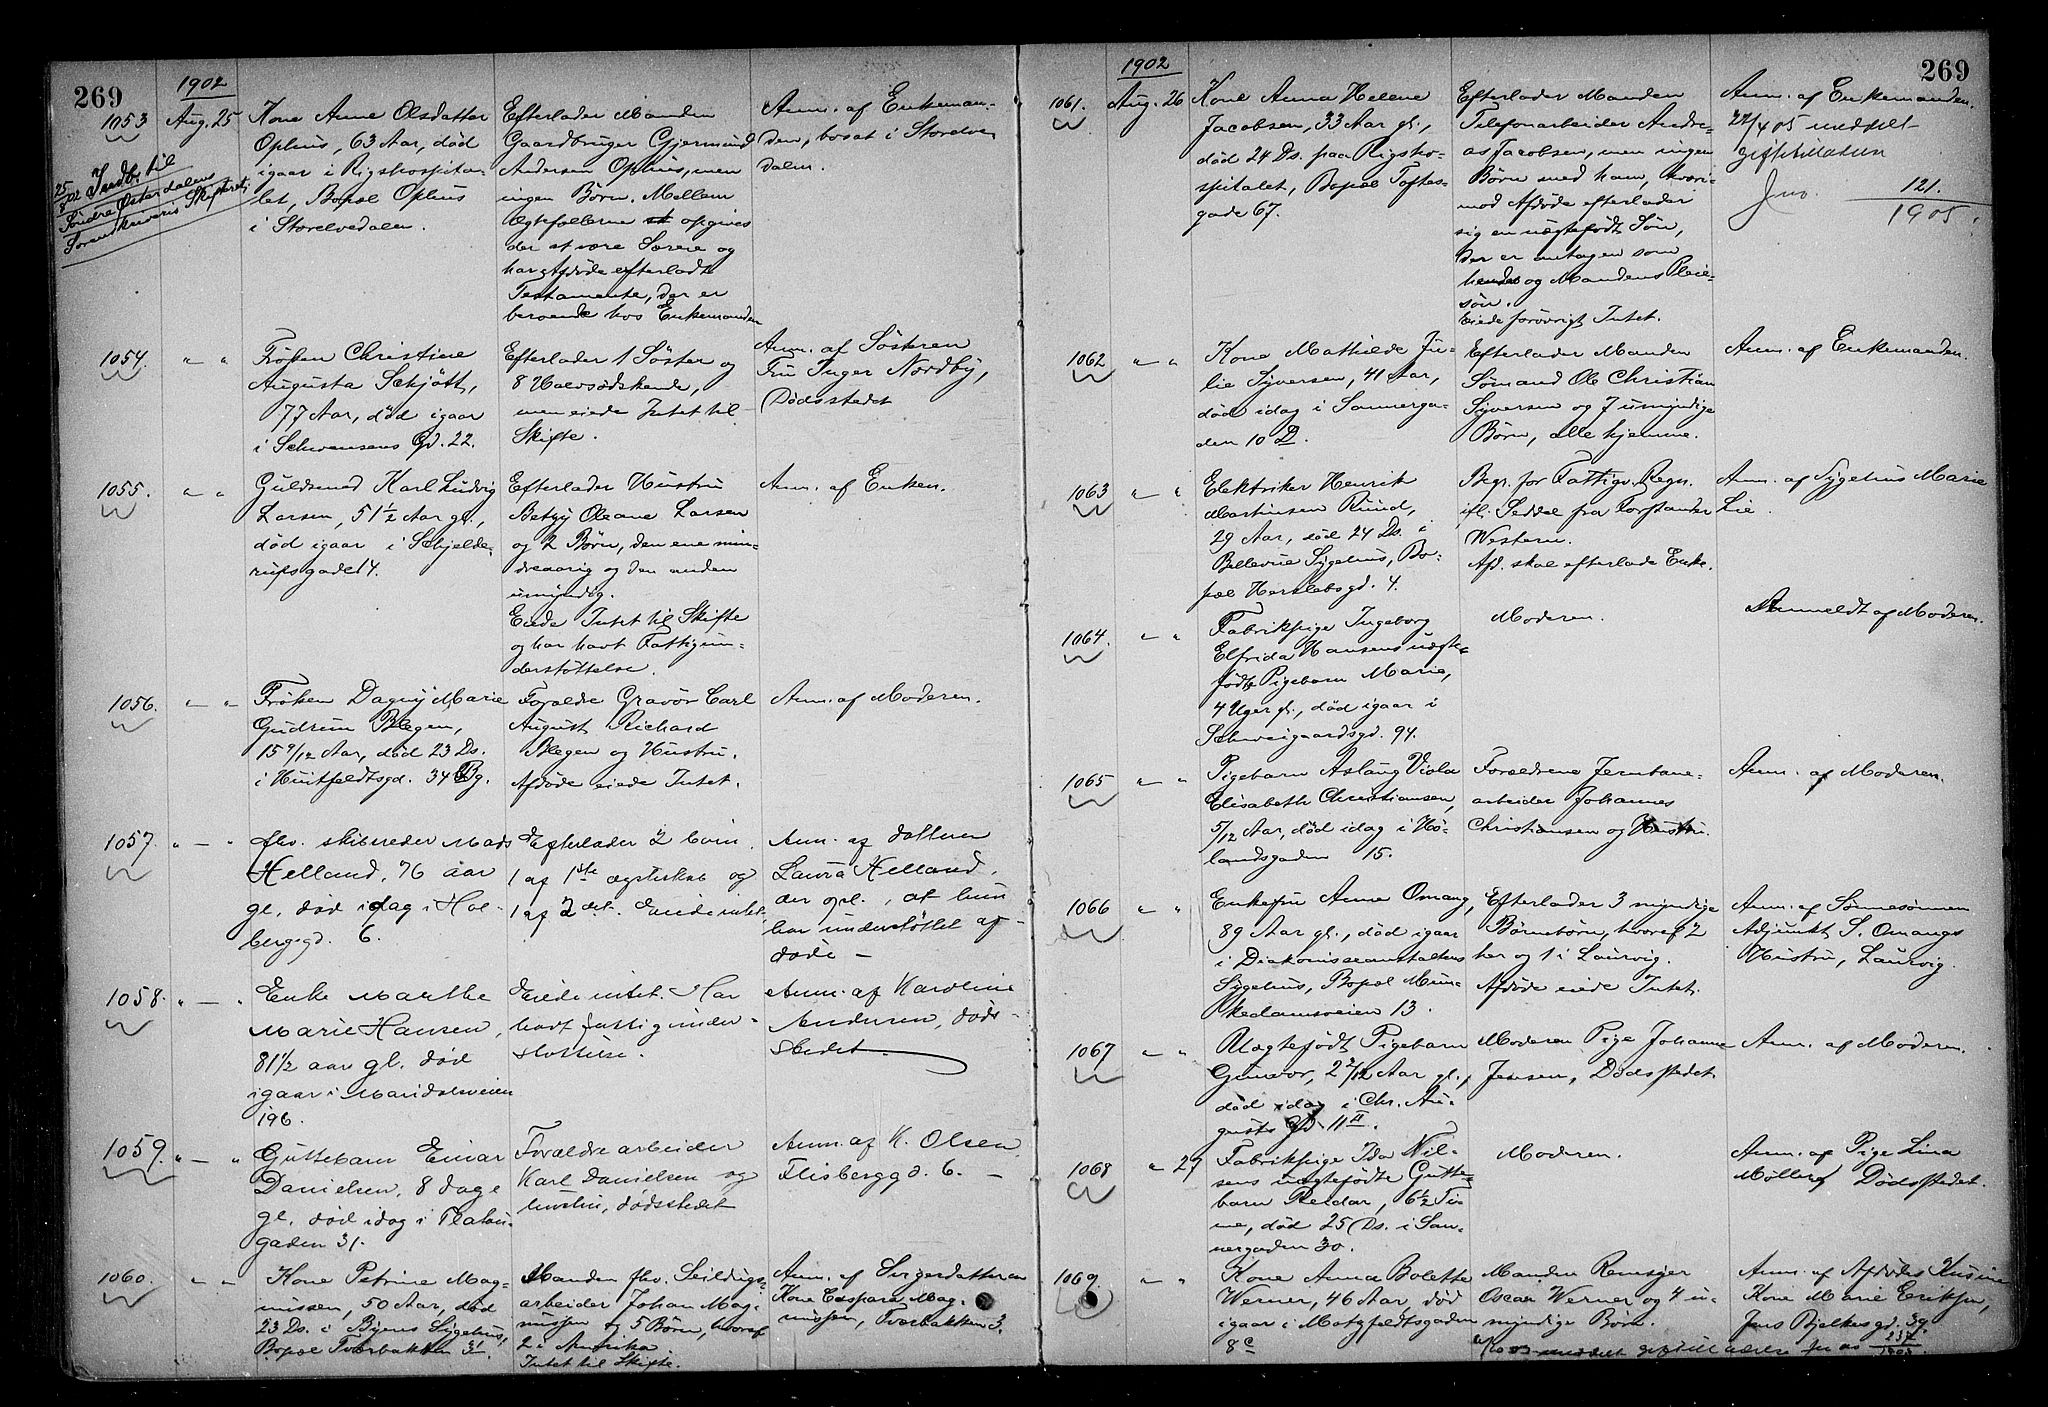 269
1902
1053
Aug. 25
Kone Anne Olsdatter
Ophus, 63 Aar, död
igaar i Rigshospita-
let, Bopæl Ophus
i Storelvedalen.
Efterlader Manden
Gaardbruger Gjermund
Andersen Ophus, men
ingen Börn. Mellem
Ægtefællerne opgives
der at være Særeie og
har Afdöde efterladt
Testamente, der er
beroende hos Enkemanden
Anm. af Enkeman-
den, bosat i Storelve
dalen.
25/8 02 Indb. til
Söndre Østerdalens
Sorenskriveris Skifteret.
1054.
" "
Fröken Christine
Augusta Schjött,
77 Aar, död igaar
i Schwensens Gd. 22.
Efterlader 1 Söster og
8 Halvsödskende,
men eiede Intet til
Skifte.
Anm. af Sösteren
Fru Inger Nordby,
Dödsstedet
1055.
" "
Guldsmed Karl Ludvig
Larsen, 51 1/2 Aar gl.,
död igaar i Schjelde-
rupsgade 14.
Efterlader Hustru
Betzy Oleane Larsen
og 2 Börn, den ene min-
dreaarig og den anden
umyndig.
Eiede Intet til Skifte
og har havt Fattigun-
derstöttelse.
Anm. af Enken.
1056.
" "
Fröken Dagny Marie
Gudrun Blegen,
15 9/12 Aar, död 23 Ds.
i Huitfeldtsgd. 34 Bg.
Foræld​re Gravör Carl
August Richard
Blegen og Hustru.
Afdöde eiede Intet.
Anm. af Moderen.
1057.
" — "
fhv. skibsreder Mads
Helland, 76 aar
gl., död idag i Hol-
bergsgd. 6.
Efterlader 2 börn.
1 af 1ste ægteskab og
1 af 2det. Eiede intet.
Anm. af datteren
Laura Helland,
der opl., at hun
har understöttet af-
döde —
1058.
" — "
Enke Marthe
Marie Hansen,
81 1/2 aar gl. död
igaar i Maridalsveien
196.
Eiede intet. Har
havt fattigunder-
stöttelse.
Anm. af Karoline
Andersen, döds-
stedet
1059.
" — "
Guttebarn Einar
Danielsen, 8 dage
gl. död idag i Platou-
gaden 31.
Forældre arbeider
Karl Danielsen og
hustru, dödsstedet
Anm. af K. Olsen
Flisberggd. 6. —
1060.
" "
Kone Petrine Mag-
nussen, 50 Aar, död
23 Ds. i Byens Sygehus,
Bopæl Tverbakken 3.
Manden fhv. Seildugs-
arbeider Johan Mag-
nussen og 5 Börn, hvoraf
2 i Amerika
Intet til Skifte.
Anm. af Svigerdatteren
Kone Caspara Mag-
nussen, Tverbakken 3.
269
1902
1061.
Aug. 26
Kone Anna Helene
Jacobsen, 33 Aar gl.,
död 24 Ds. paa Rigsho-
spitalet, Bopæl Toftes-
gade 67.
Efterlader Manden
Telefonarbeider Andre-
as Jacobsen, men ingen
Börn med ham, hvori-
mod Afdöde efterlader
sig en uægtefödt Sön,
der er antagen som
hendes og Mandens Pleie-
sön.
Eiede forövrigt Intet.
Anm. af Enkemanden.
22/4 05 meddelt
giftetilladelse
Jno. 121.
1905.
1062
" "
Kone Mathilde Ju-
lie Syversen, 41 Aar,
död idag i Sannerga-
den 10 D.
Efterlader Manden
Sömand Ole Christian
Syversen og 7 umyndige
Börn, alle hjemme.
Anm. af Enkemanden.
1063
" "
Elektriker Henrik
Martinsen Ruud,
29 Aar, död 24 Ds. i
Bellevue Sygehus, Bo-
pæl Herslebsgd. 4.
Begr. for Fattigv. Regn.
ifl. Seddel fra Forstander
Western.
Afd. skal efterlade Enke.
Anm. af Sygehus Marie
Lie.
1064.
" "
Fabrikpige Ingeborg
Elfrida Hansens uægte-
födte Pigebarn Marie,
4 Uger gl., död igaar i
Schweigaardsgd. 94.
Moderen.
Anmeldt af Moderen.
1065
" "
Pigebarn Aslaug Viola
Elisabeth Christiansen,
5/12 Aar, död idag i Hö-
landsgaden 15.
Forældrene Jernbane-
arbeider Johannes
Christiansen og Hustru.
Anm. af Moderen.
1066
" "
Enkefru Anne Omang,
89 Aar gl., död igaar
i Diakonisseanstaltens
Sygehus, Bopæl Mun-
kedamsveien 13.
Efterlader 3 myndige
Börnebörn, hvoraf 2
her og 1 i Laurvig.
Afdöde eiede Intet.
Anm. af Sönnesönnen
Adjunkt S. Omangs
Hustru, Laurvig.
1067
" "
Uægtefödt Pigebarn
Gunvor, 2 2/12 Aar gl.,
död idag i Chr. Au-
gusts Gd. 11 II.
Moderen Pige Johanne
Jensen, Dödsstedet.
Anm. af Moderen.
1068
" 27
Fabrikpige Ida Nil-
sens uægtefödte Gutte-
barn Reidar, 6 1/2 Ti-
me, död 25 Ds. i San-
nergaden 30.
Moderen.
Anm. af Pige Lina
Möller, Dödsstedet.
1069.
" "
Kone Anna Bolette
Werner, 46 Aar, död
igaar i Motzfeldtsgaden
8 c
Manden Remsyer
Oscar Werner og 4 u-
myndige Börn.
meddelt
Anm. af Afdödes Kusine
Kone Marie Eriksen,
Jens Bjelkes gd. 39.
237